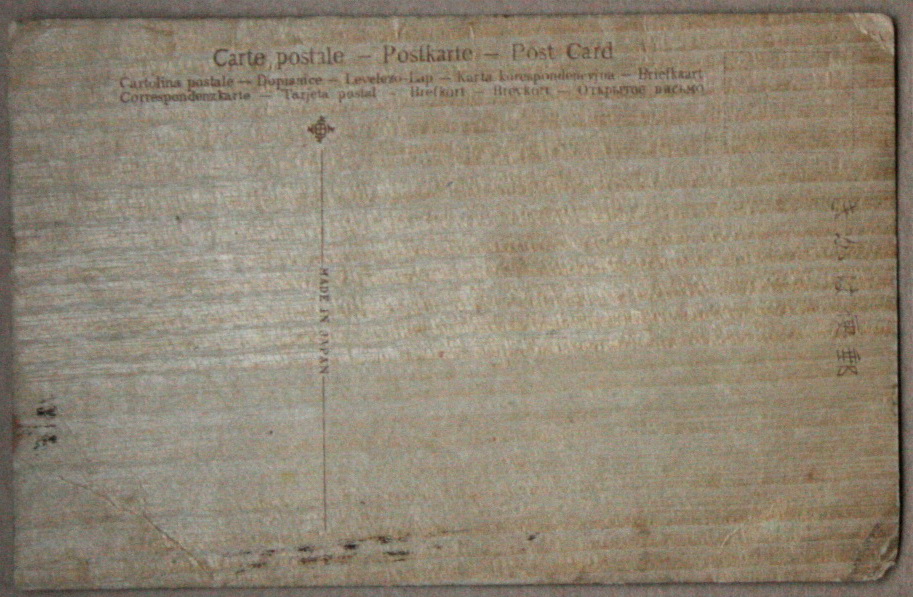 Carte postale – Postkarte – Post Card
Cartolina postale – Dopisnice – Levelezo-Lap – Karta korespondencyjna – Briefkaart
Correspondenzkarte – Tarjeta postal – Brefkort – Brevkort – Открытое письмо
MADE IN JAPAN